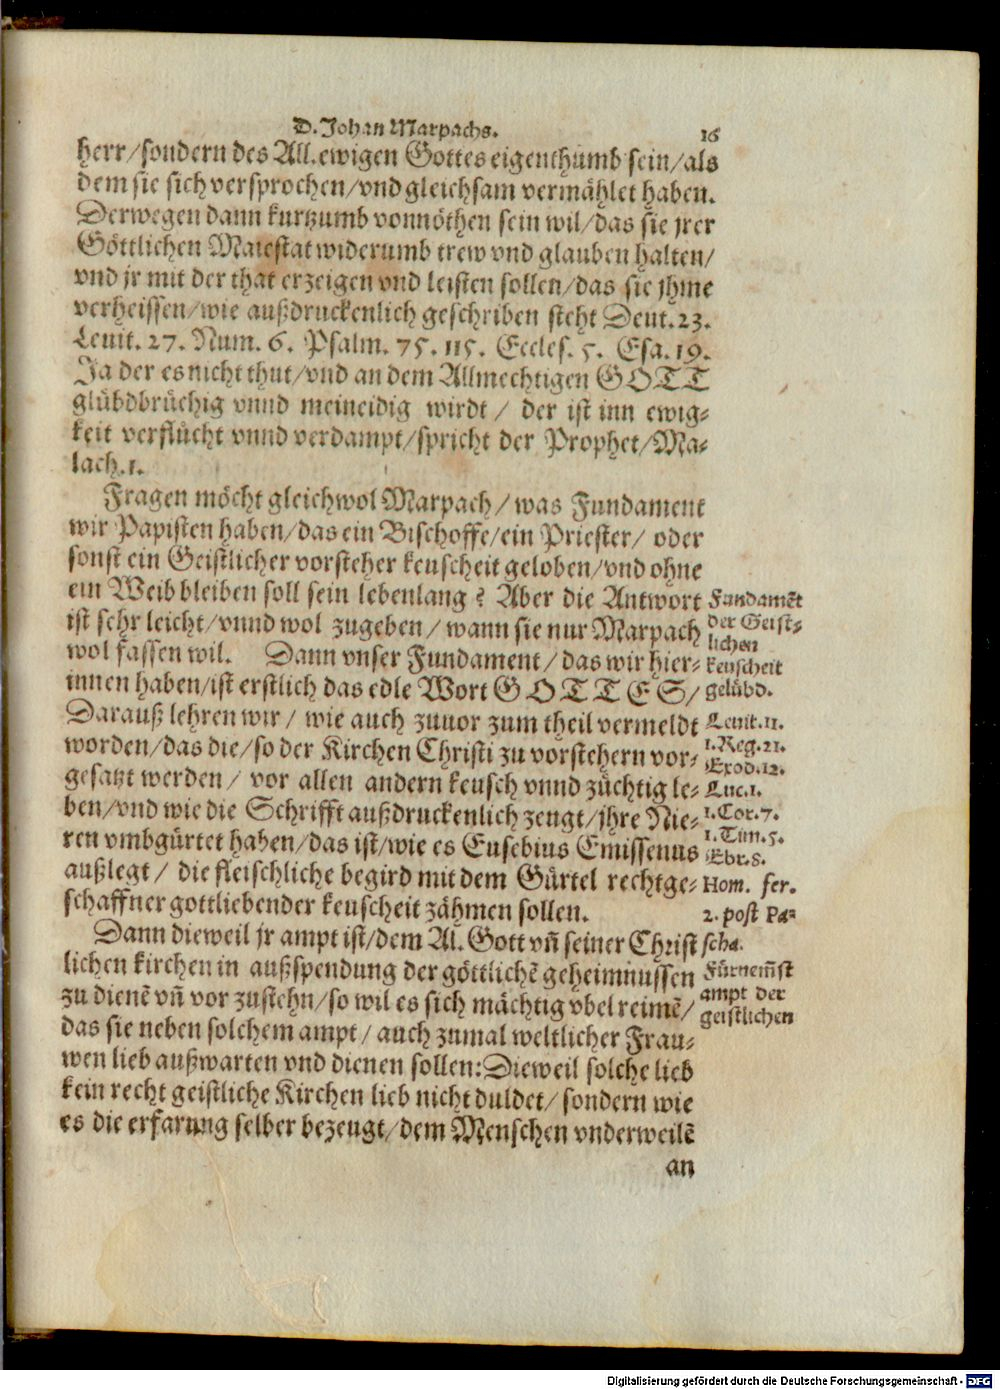 D. Johan Marpachs.
16
herr/sondern des All. ewigen Gottes eigenthumb sein/als
dem sie sich versprochen/vnd gleichsam vermählet haben.
Derwegen dann kurtzumb vonnöthen sein wil/das sie jrer
Göttlichen Maiestat widerumb trew vnd glauben halten/
vnd jr mit der that erzeigen vnd leisten sollen/das sie jhme
verheissen/wie außdruckenlich geschriben steht Deut. 23.
Leuit. 27. Num. 6. Psalm. 75. 115. Eccles. 5. Esa. 19.
Ja der es nicht thut/vnd an dem Allmechtigen GOTT
glübdbrüchig vnnd meineidig wirdt / der ist inn ewig-
keit verflucht vnnd verdampt/spricht der Prophet/Ma-
lach. 1.
Fragen möcht gleichwol Marpach / was Fundament
wir Papisten haben/das ein Bischoffe/ein Priester/ oder
sonst ein Geistlicher vorsteher keuscheit geloben/vnd ohne
ein Weib bleiben soll sein lebenlang? Aber die Antwort
ist sehr leicht/vnnd wol zugeben / wann sie nur Marpach
wol fassen wil. Dann vnser Fundament / das wir hier-
innen haben/ist erstlich das edle Wort GOTTES/
Darauß lehren wir / wie auch zuuor zum theil vermeldt
worden/das die/so der Kirchen Christi zu vorstehern vor-
gesatzt werden / vor allen andern keusch vnnd züchtig le-
ben/vnd wie die Schrifft außdruckenlich zeugt/jhre Nie-
ren vmbgürtet haben/das ist/wie es Eusebius Emissenus
außlegt / die fleischliche begird mit dem Gürtel rechtge-
schaffner gottliebender keuscheit zähmen sollen.
Dann dieweil jr ampt ist/dem Al. Gott vñ seiner Christ
lichen kirchen in außspendung der göttlichẽ geheimnussen
zu dienẽ vñ vor zustehn/so wil es sich mächtig vbel reimẽ/
das sie neben solchem ampt/ auch zumal weltlicher Frau-
wen lieb außwarten vnd dienen sollen: Dieweil solche lieb
kein recht geistliche Kirchen lieb nicht duldet/ sondern wie
es die erfarung selber bezeugt/dem Menschen vnderweilẽ
an
Fundamẽt
der Geist-
lichen
keuscheit
gelübd.
Leuit. 11.
1. Reg. 21.
Exod. 12.
Luc. 1.
1. Cor. 7.
1. Tim. 5.
Ebr. 8.
Hom. fer.
2. post Pa-
scha.
Fürnem̃st
ampt der
geistlichen
Digitalisierung gefördert durch die Deutsche Forschungsgemeinschaft - DFG